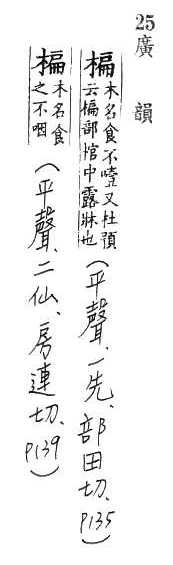 25 廣韻
楄木名食不噎又杜預云楄部棺中露牀也(平聲、一先、部田切、P135)
楄木名食之不咽(平聲、二仙、房連切、P139)